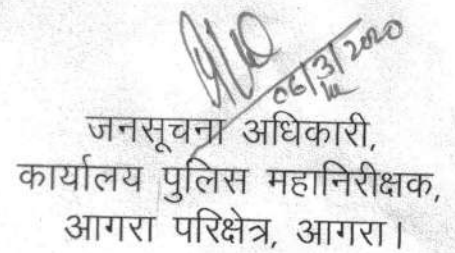 06/3/2020
जनसूचना अधिकारी,
कार्यालय पुलिस महानिरीक्षक,
आगरा परिक्षेत्र, आगरा।